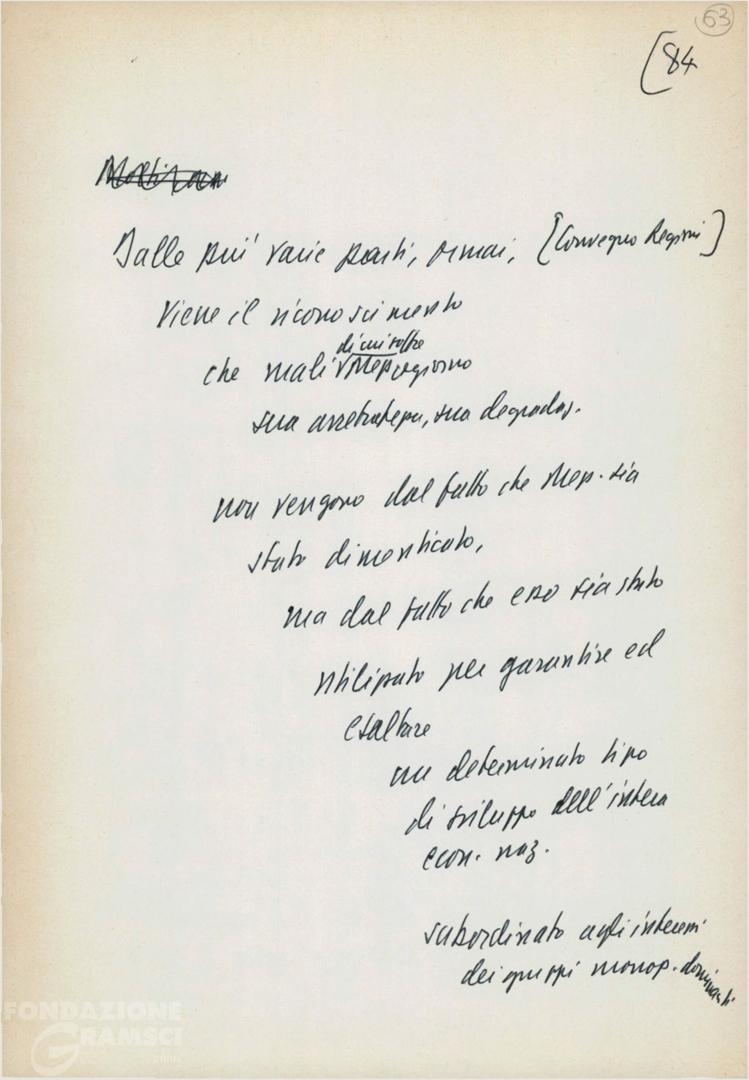 63
[84
Dalle più varie parti, ormai, [Convegno Regioni]
viene il riconoscimento
di cui soffre
che mali Mezzogiorno
sua arretratezza, sua degradaz.
non vengono dal fatto che Mezz. sia
stato dimenticato,
ma dal fatto che esso sia stato
utilizzato per garantire ed
esaltare
un determinato tipo
di sviluppo dell'intera
econ. naz.
subordinato agli interessi
dei gruppi monop. dominanti
FONDAZIONE
GRAMSCI